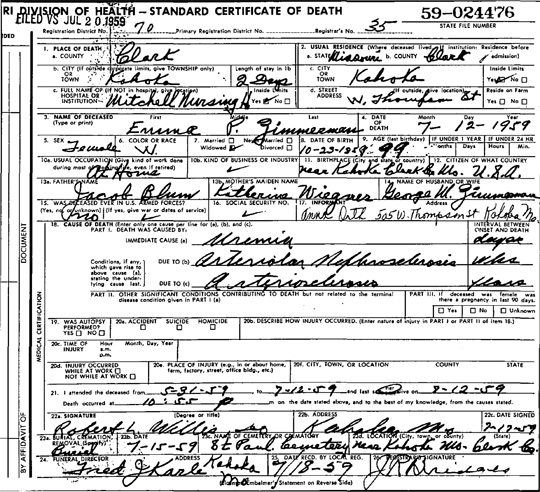 RI DIVISION OF HEALTH—STANDARD CERTIFICATE OF DEATH
FILED VS JUL 20 1959
59-024476
STATE FILE NUMBER
Registration District No. 70 Primary Registration District No. Registrar's No. 35
1. PLACE OF DEATH
a. COUNTY Clark
2. USUAL RESIDENCE (Where deceased lived. If institution: Residence before admission)
a. STATE Missouri b. COUNTY Clark
b. CITY (If outside corporate limits, give TOWNSHIP only) OR TOWN Kahoka
Length of stay in 1b 2 Days
c. CITY OR TOWN Kahoka
Inside Limits Yes No
c. FULL NAME OF (If NOT in hospital, give location) HOSPITAL OR INSTITUTION Mitchell Nursing H
Inside Limits Yes No
d. STREET ADDRESS (If outside, give location) W. Thompson St
Reside on Farm Yes No
3. NAME OF DECEASED (Type or print) First Middle Last
Emma P. Zimmerman
4. DATE OF DEATH Month Day Year
7-12-1959
5. SEX Female
6. COLOR OR RACE W
7. Married Never Married Widowed Divorced
8. DATE OF BIRTH 10-23-1859
9. AGE (last birthday) 99
IF UNDER 1 YEAR Months Days
IF UNDER 24 HR Hours Min.
10a. USUAL OCCUPATION (Give kind of work done during most of working life, even if retired) At Home
10b. KIND OF BUSINESS OR INDUSTRY
11. BIRTHPLACE (City and state or country) near Kahoka Clark Co. Mo.
12. CITIZEN OF WHAT COUNTRY U.S.A.
13a. FATHER'S NAME Jacob Blum
13b. MOTHER'S MAIDEN NAME Katherine Wiegner
14. NAME OF HUSBAND OR WIFE George M. Zimmerman
15. WAS DECEASED EVER IN U.S. ARMED FORCES? (Yes, no, or unknown) (If yes, give war or dates of service) No
16. SOCIAL SECURITY NO.
17. INFORMANT Address
505 W. Thompson St Kahoka Mo
18. CAUSE OF DEATH (Enter only one cause per line for (a), (b), and (c).
PART I. DEATH WAS CAUSED BY:
INTERVAL BETWEEN ONSET AND DEATH
IMMEDIATE CAUSE (a) Uremia days
Conditions, if any, which gave rise to above cause (a), stating the underlying cause last.
DUE TO (b) Arteriolar Nephrosclerosis wks
DUE TO (c) Arteriosclerosis years
PART II. OTHER SIGNIFICANT CONDITIONS CONTRIBUTING TO DEATH but not related to the terminal disease condition given in PART I (a)
PART III. If deceased was female was there a pregnancy in last 90 days.
Yes No Unknown
19. WAS AUTOPSY PERFORMED? YES NO
20a. ACCIDENT SUICIDE HOMICIDE
20b. DESCRIBE HOW INJURY OCCURRED. (Enter nature of injury in PART I or PART II of item 18.)
20c. TIME OF INJURY Hour a.m. p.m. Month, Day, Year
20d. INJURY OCCURRED WHILE AT WORK NOT WHILE AT WORK
20e. PLACE OF INJURY (e.g., in or about home, farm, factory, street, office bldg., etc.)
20f. CITY, TOWN, OR LOCATION COUNTY STATE
21. I attended the deceased from 5-31-59 to 7-12-59 and last saw alive on 7-12-59
Death occurred at 10:55 p m on the date stated above, and to the best of my knowledge, from the causes stated.
22a. SIGNATURE (Degree or title) Robert L. Willis
22b. ADDRESS Kahoka Mo
22c. DATE SIGNED 7-17-59
23a. BURIAL, CREMATION, REMOVAL (Specify) Burial
23b. DATE 7-15-59
23c. NAME OF CEMETERY OR CREMATORY St Paul Cemetery
23d. LOCATION (City, town, or county) (State) near Kahoka Mo. Clark Co.
24. FUNERAL DIRECTOR Fred J Karle Kahoka Mo
25. DATE RECD. BY LOCAL REG. 7/18-59
26. REGISTRAR'S SIGNATURE
(Licensed Embalmer's Statement on Reverse Side)
DOCUMENT
MEDICAL CERTIFICATION
BY AFFIDAVIT OF